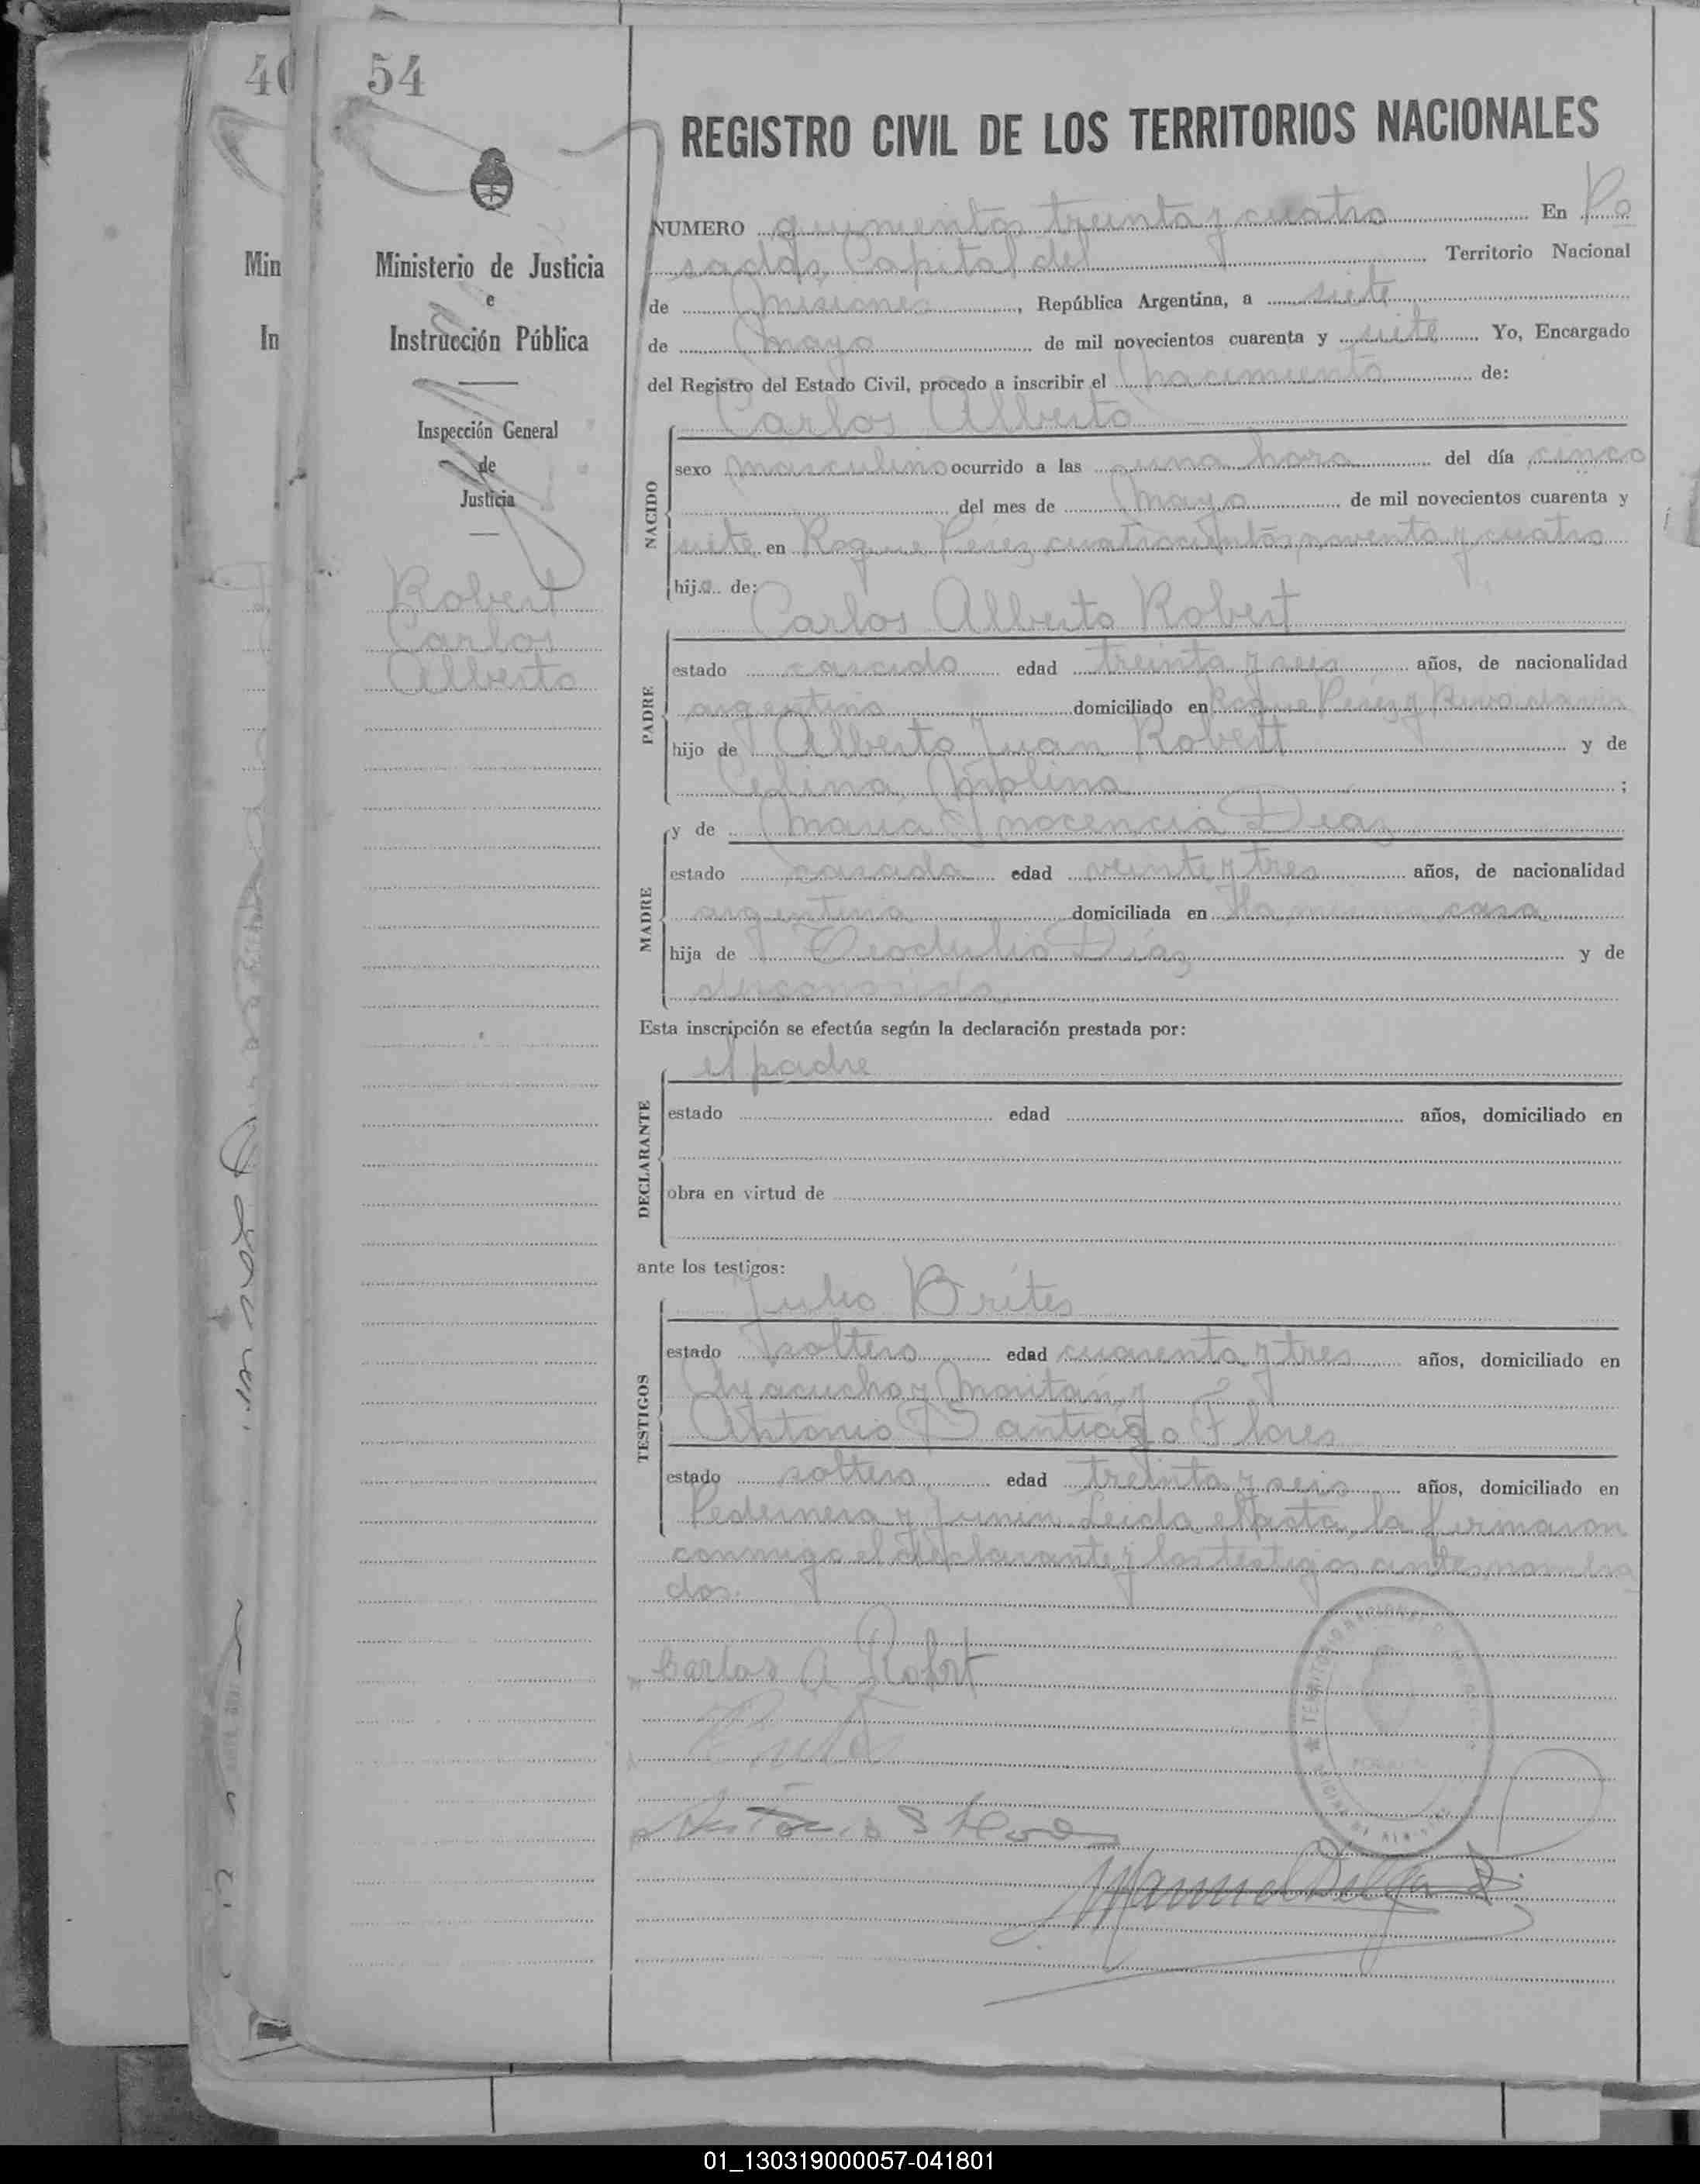 40
54
REGISTRO CIVIL DE LOS TERRITORIOS NACIONALES
Min
In
Ministerio de Justicia
e
Instrucción Pública
Inspección General
de
Justicia
Robert
Carlos
Alberto
NUMERO quinientos treinta y cuatro En Po
sadas, Capital del Territorio Nacional
de Misiones, República Argentina, a siete
de Mayo de mil novecientos cuarenta y siete Yo, Encargado
del Registro del Estado Civil, procedo a inscribir el Nacimiento de:
Carlos Alberto
NACIDO
sexo masculino ocurrido a las una hora del día cinco
del mes de Mayo de mil novecientos cuarenta y
siete en Roque Pérez cuatrocientos noventa y cuatro
hijo de:
Carlos Alberto Robert
PADRE
estado casado edad treinta y seis años, de nacionalidad
argentina domiciliado en Roque Pérez y Rivadavia
hijo de Alberto Juan Robert y de
Celina Molina ;
MADRE
y de María Inocencia Díaz
estado casada edad veinte y tres años, de nacionalidad
argentina domiciliada en la misma casa
hija de Teodulio Díaz y de
desconocida
Esta inscripción se efectúa según la declaración prestada por:
el padre
DECLARANTE
estado edad años, domiciliado en
obra en virtud de
ante los testigos:
Julio Brites
TESTIGOS
estado soltero edad cuarenta y tres años, domiciliado en
Ayacucho y Moritán, y
Antonio Santiago Flores
estado soltero edad treinta y seis años, domiciliado en
Pedernera y Junin. Leida el acta, la firmaron
conmigo el declarante y los testigos antes nombra
dos.
Carlos A Robert
Antonio S Flores
Manuel Delgado
01_130319000057-041801